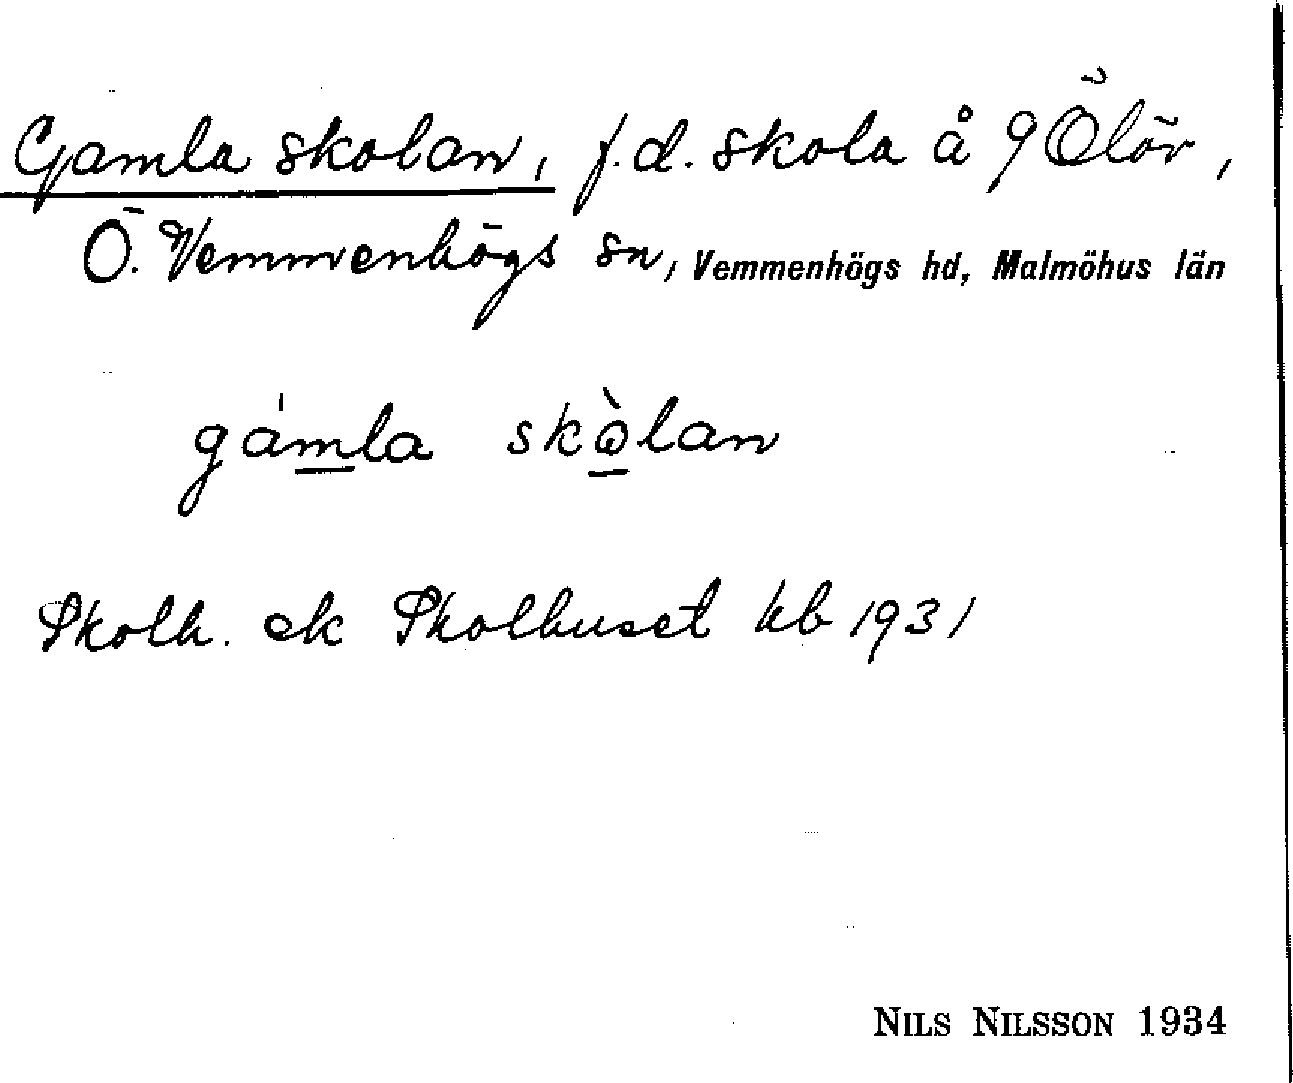 Gamla skolan, f.d. skola å 9 Ölöv,
Ö. Vemmenhögs sn, Vemmenhögs hd, Malmöhus län
gámla skòlan
Skolh. ek Skolhuset kb 1931
NILS NILSSON 1934